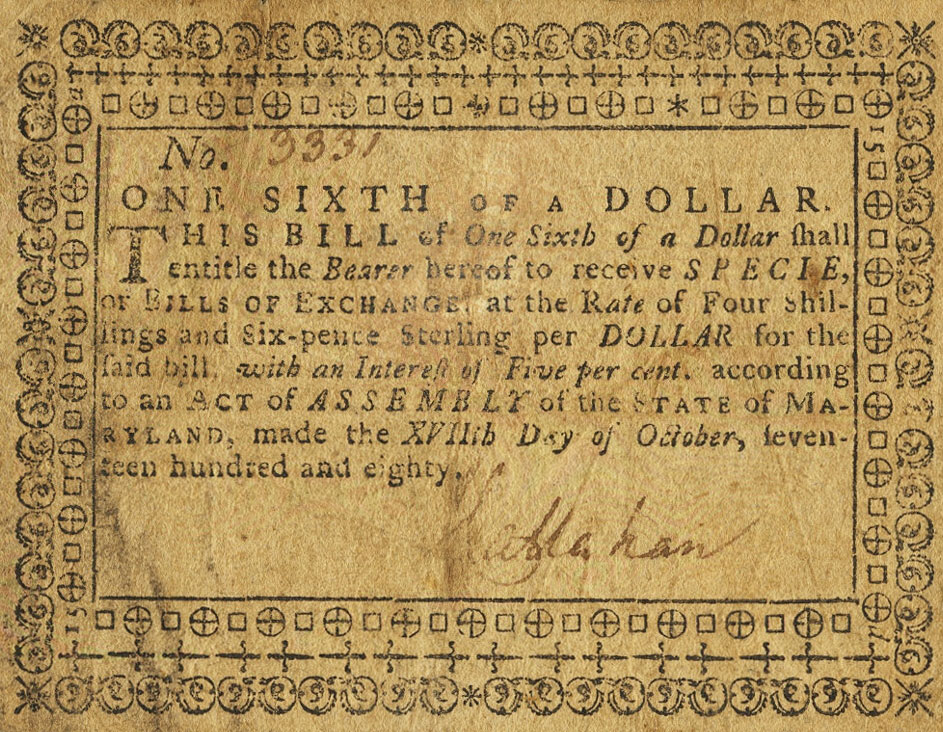 No. 3331
ONE SIXTH OF A DOLLAR.
THIS BILL of One Sixth of a Dollar ſhall
entitle the Bearer hereof to receive SPECIE,
or BILLS OF EXCHANGE, at the Rate of Four Shil-
lings and Six-pence Sterling per DOLLAR for the
ſaid bill, with an Intereſt of Five per cent. according
to an ACT of ASSEMBLY of the STATE of MA-
RYLAND, made the XVIIth Day of October, ſeven-
teen hundred and eighty.